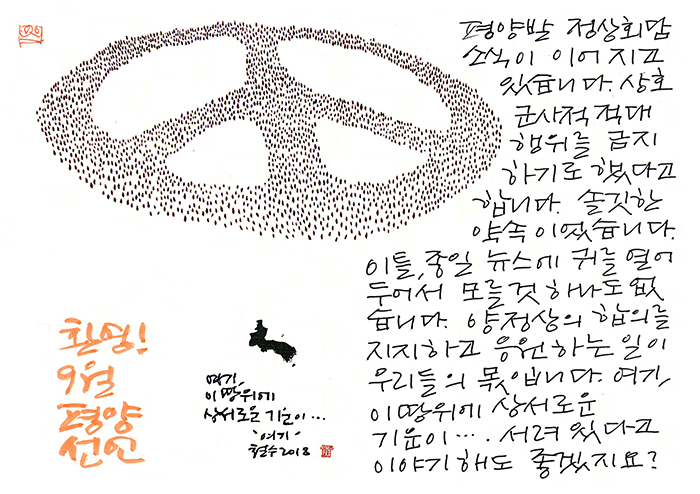 평양발 정상회담
소식이 이어지고
있습니다. 상호
군사적 적대
행위를 금지
하기로 했다고
합니다. 솔깃한
약속이었습니다.
이틀, 종일 뉴스에 귀를 열어
두어서 모를 것 하나도 없
습니다. 양 정상의 합의를
지지하고 응원하는 일이
우리들의 몫입니다. 여기,
이 땅위에 상서로운
기운이···. 서려 있다고
이야기해도 좋겠지요?
환영!
9월
평양
선언
여기,
이 땅위에
상서로운 기운이···
'여기'
철수 2018